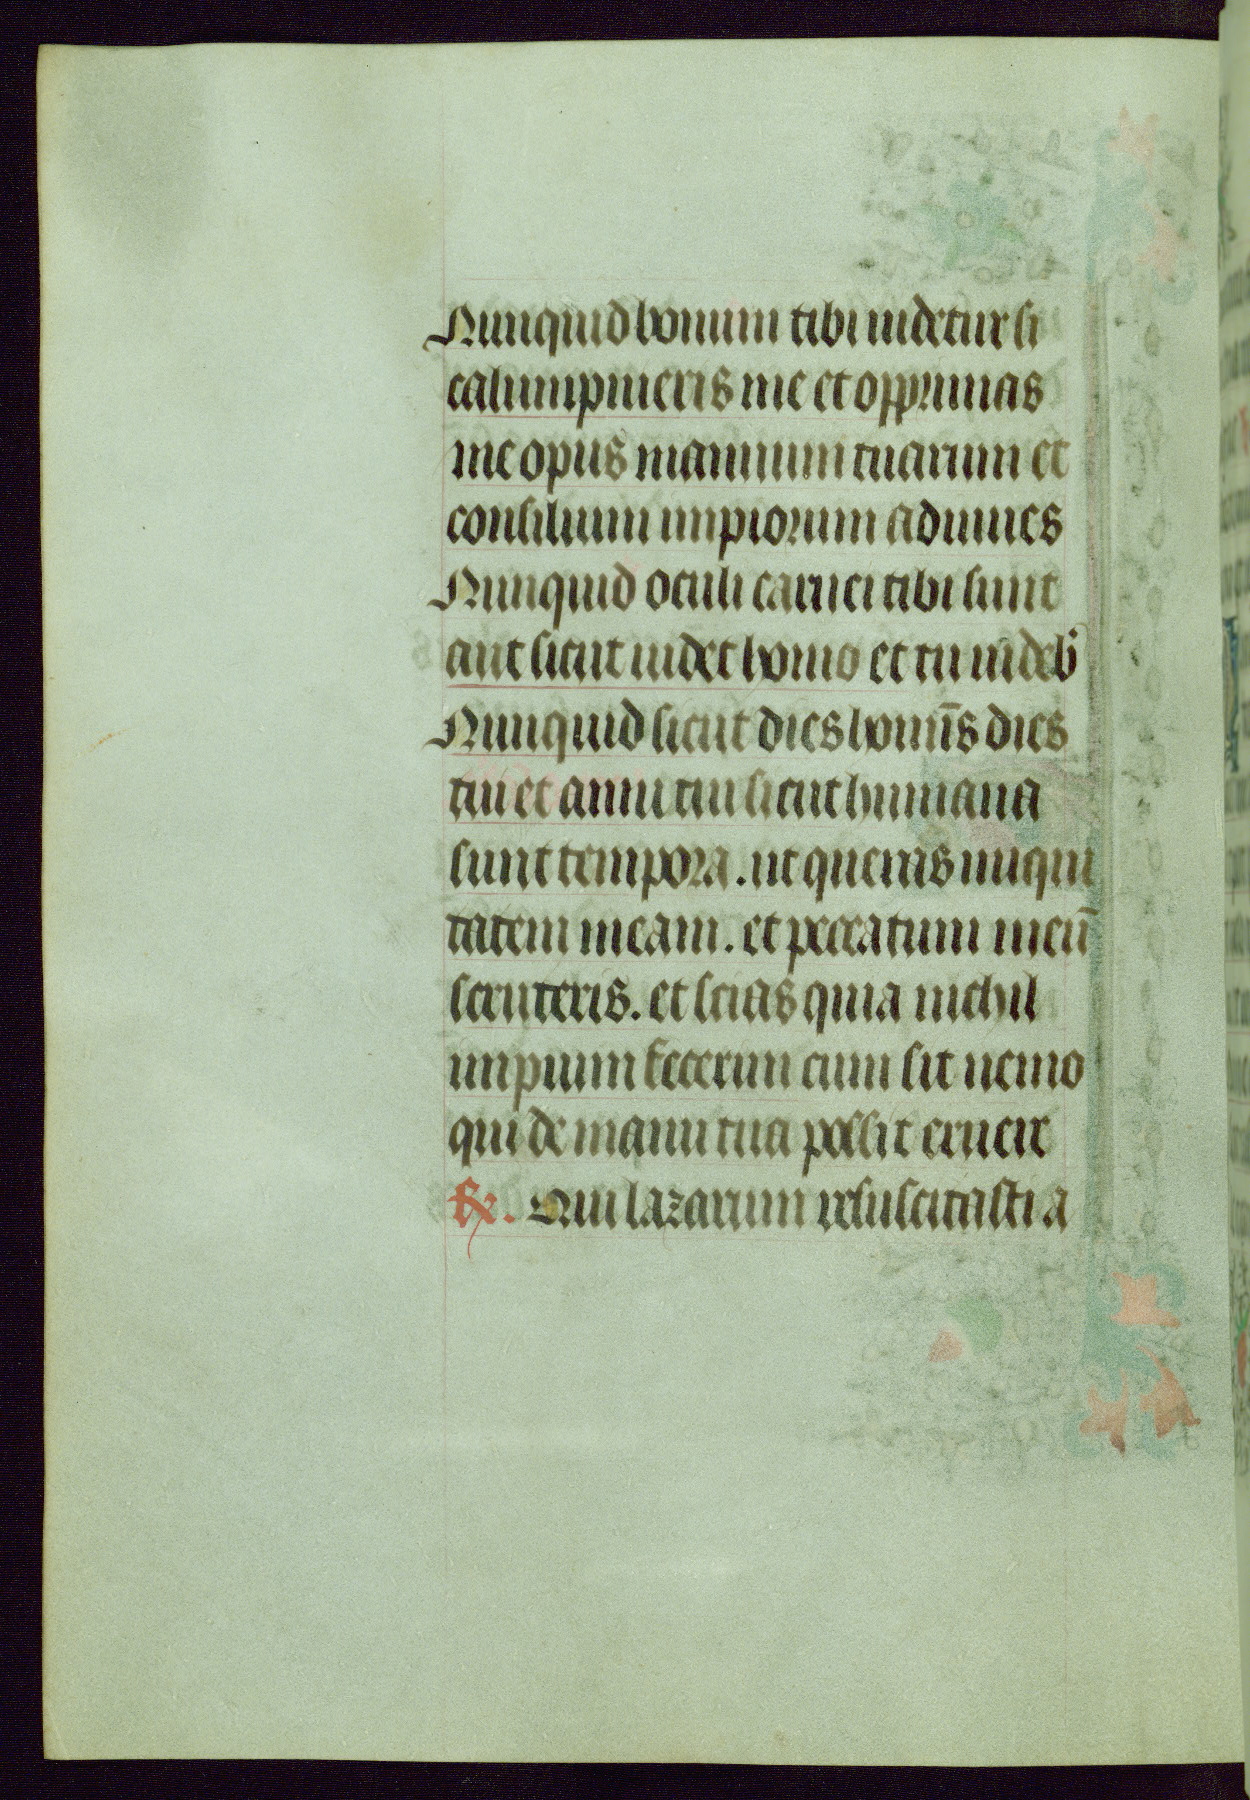 Nunquid bonum tibi uidetur si
calumpnieris me et opprimas
me opus manuum tuarum et
consilium impiorum adiuues
Nunquid oculi carnei tibi sunt
aut sicut uidet homo et tu uideb'
Nunquid sicut dies homīs dies
tui et anni tui sicut humana
sunt tempora . ut queras iniqui
tatem meam . et peccatum meū
scruteris . et scias quia nichil
impium fecerim cum sit nemo
qui de manu tua possit eruere
℟. Qui lazarum resuscitasti a